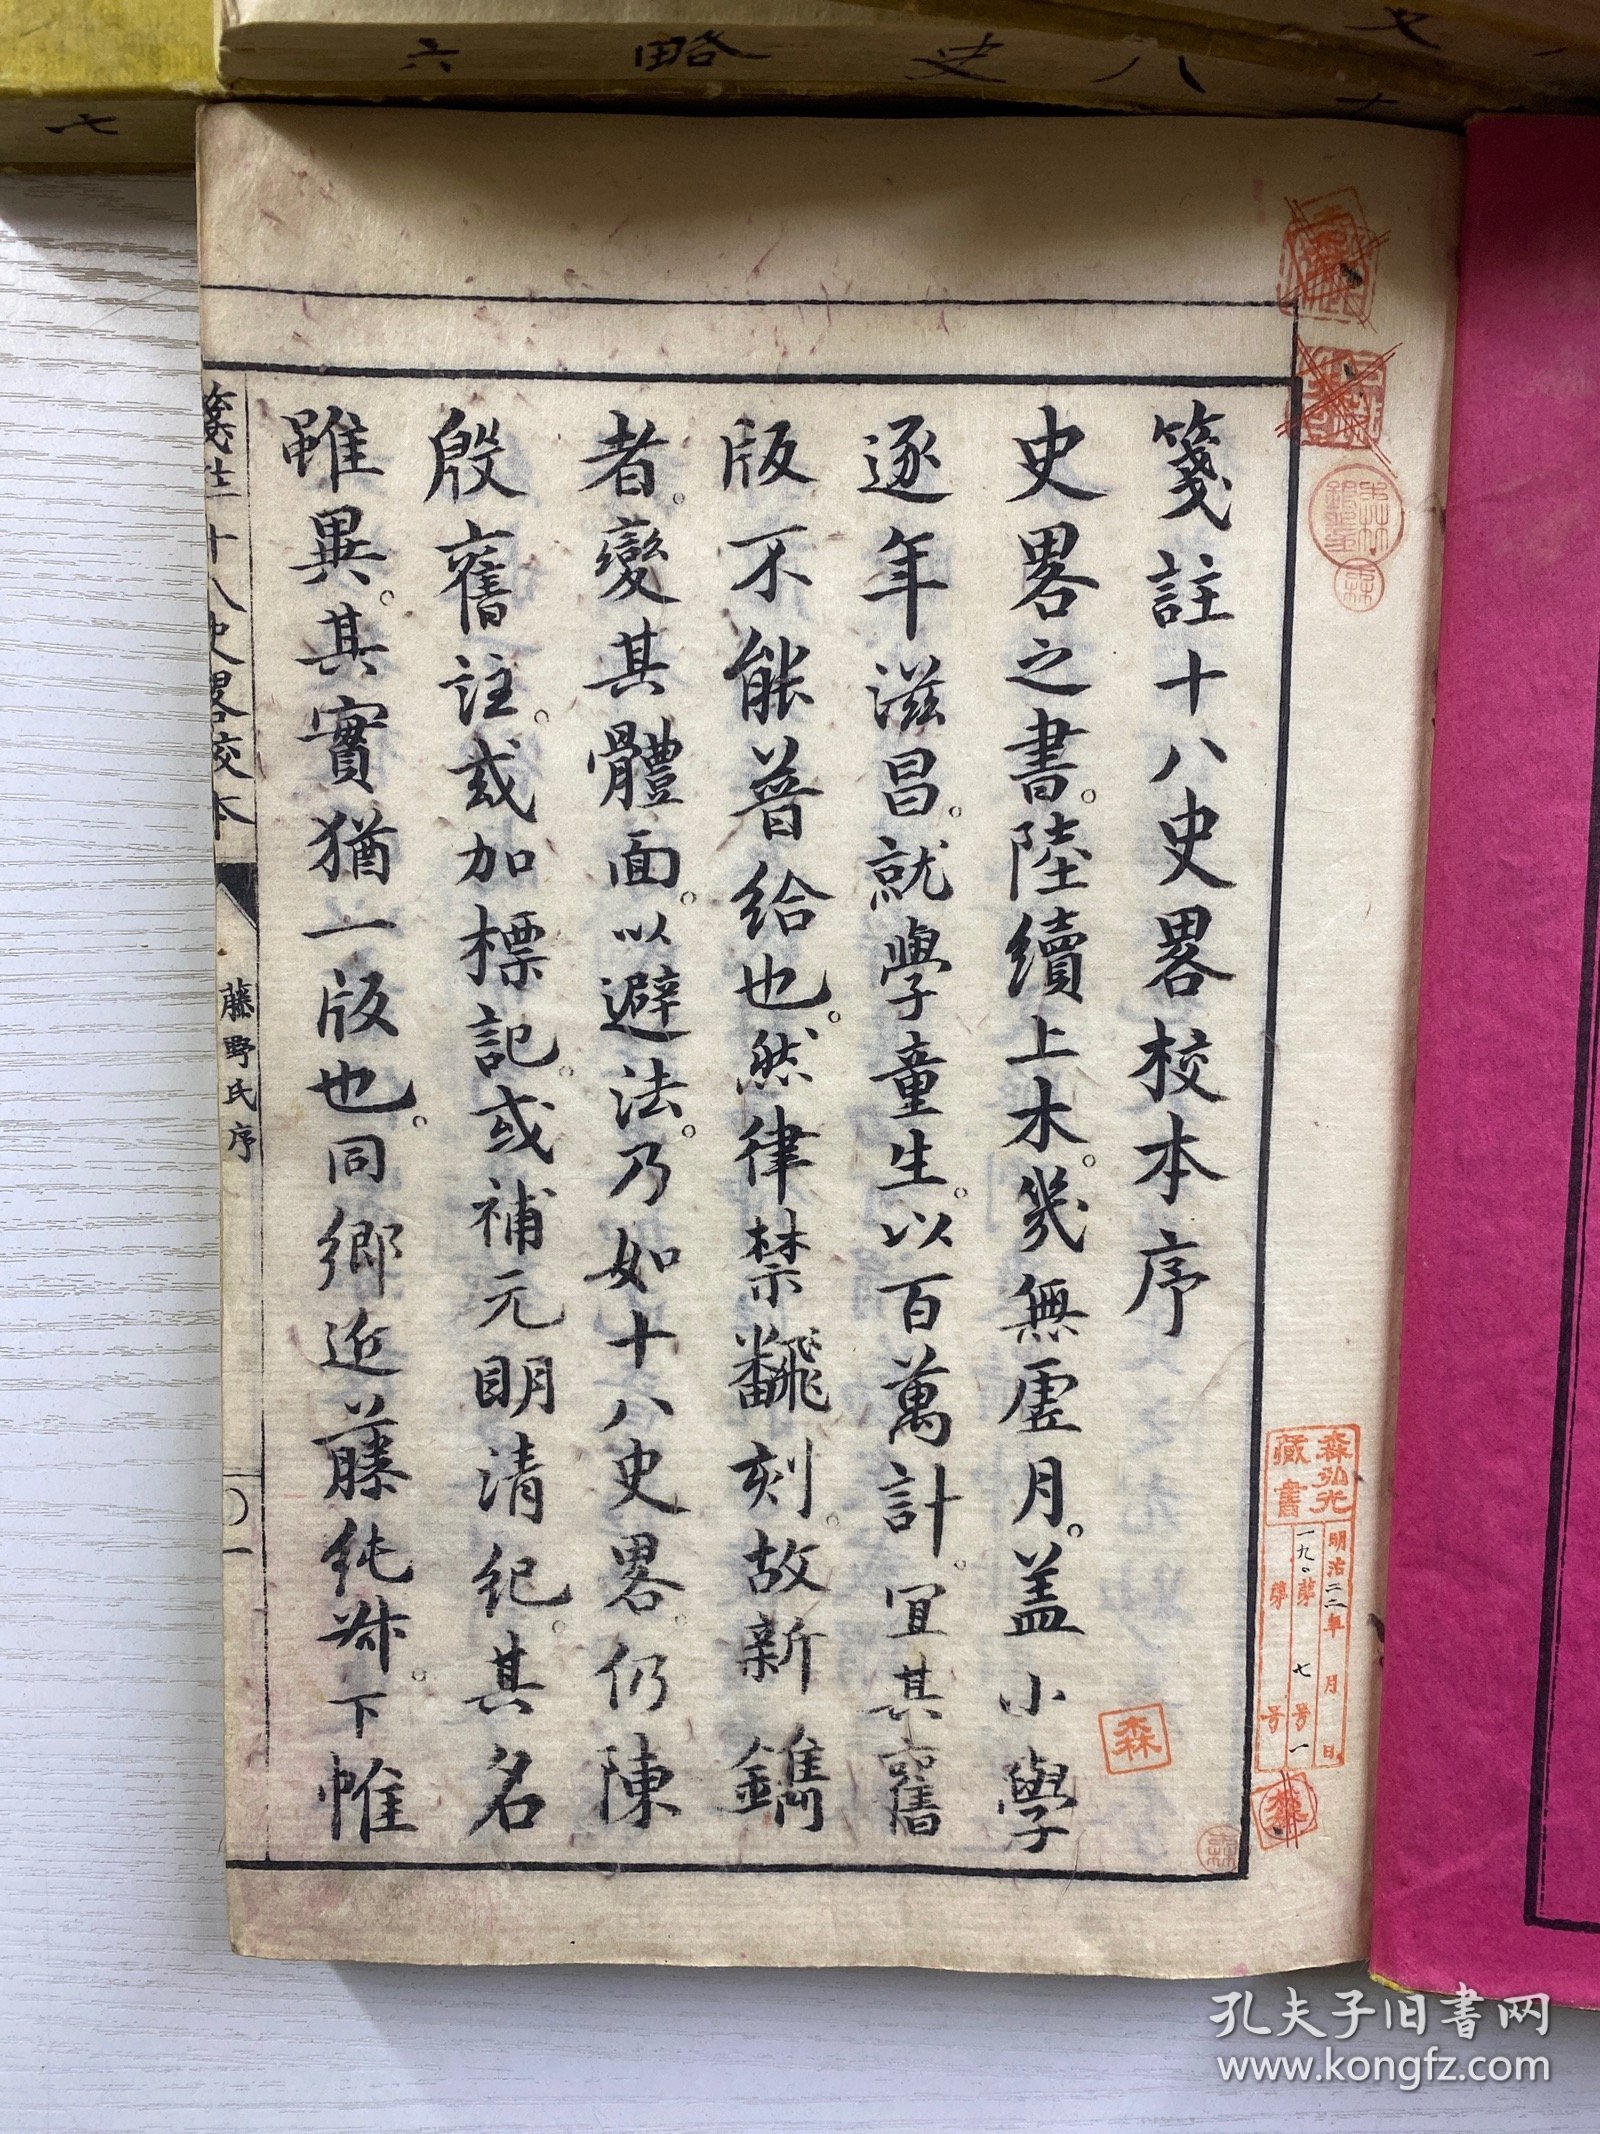 六 略 史 八
七
箋註十八史畧校本序
史畧之書。陸續上木。幾無虛月。盖小學
逐年滋昌。就學童生。以百萬計。宜其舊
版不能普給也。然律禁飜刻。故新鐫
者。變其體面。以避法。乃如十八史畧。仍陳
殷舊註。或加標記。或補元明清紀。其名
雖異。其實猶一版也。同鄉近藤純叔。下帷
箋註十八史畧校本
藤野氏序
一
森弘光
藏書
明治二二年 月 日
一九〇 第 七 号 一
第 号
森
森
森
孔夫子旧书网
www.kongfz.com